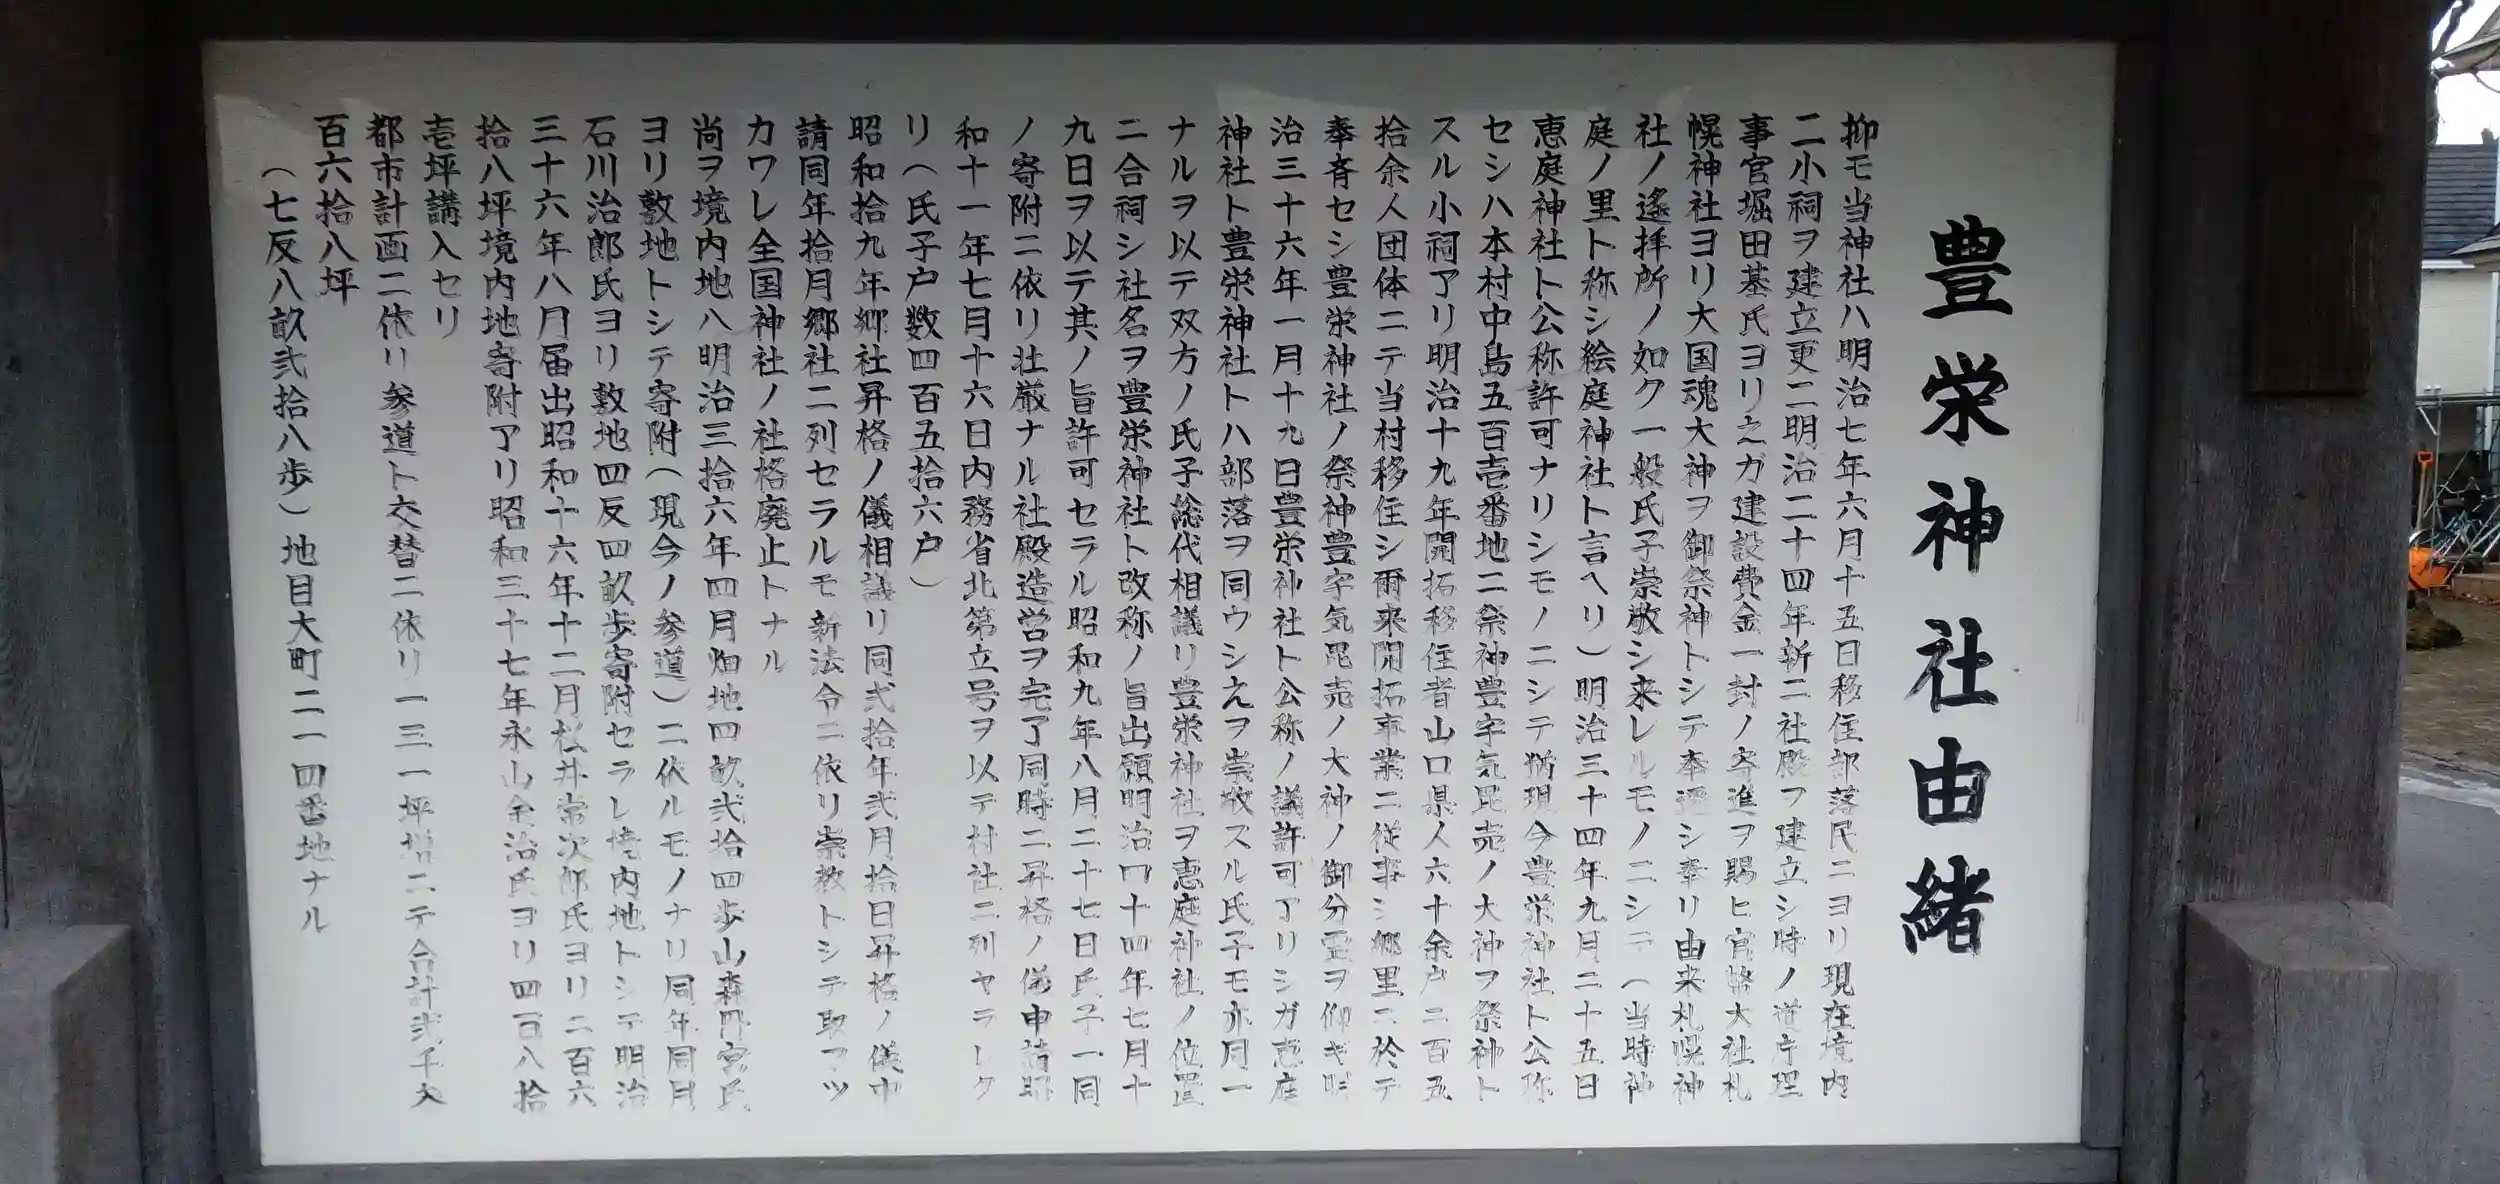 豊栄神社由緒
抑モ当神社ハ明治七年六月十五日移住部落民ニヨリ現在境内
二小祠ヲ建立更二明治二十四年新二社殿ヲ建立シ時ノ道庁理
事官堀田基氏ヨリ之ガ建設費金一封ノ寄進ヲ賜ヒ官幣大社札
幌神社ヨリ大国魂大神ヲ御祭神トシテ奉遷シ奉リ由来札幌神
社ノ遙拝所ノ如ク一般氏子崇敬シ来レルモノ二シテ(当時神
庭ノ里ト称シ絵庭神社ト言ヘリ)明治三十四年九月二十五日
恵庭神社ト公称許可ナリシモノ二シテ猶現今豊栄神社ト公称
セシハ本村中島五百壱番地二祭神豊宇気毘売ノ大神ヲ祭神ト
スル小祠アリ明治十九年開拓移住者山口県人六十余戸二百五
拾余人団体二テ当村移住シ爾来開拓事業二従事シ郷里二於テ
奉斉セシ豊栄神社ノ祭神豊宇気毘売ノ大神ノ御分霊ヲ仰ギ明
治三十六年一月十九日豊栄神社ト公称ノ議許可アリシガ恵庭
神社ト豊栄神社トハ部落ヲ同ウシ之ヲ崇敬スル氏子モ亦同一
ナルヲ以テ双方ノ氏子総代相議リ豊栄神社ヲ恵庭神社ノ位置
二合祠シ社名ヲ豊栄神社ト改称ノ旨出願明治四十四年七月十
九日ヲ以テ其ノ旨許可セラル昭和九年八月二十七日氏子一同
ノ寄附二依リ壮厳ナル社殿造営ヲ完了同時二昇格ノ儀申請昭
和十一年七月十六日内務省北第立号ヲ以テ村社二列セラレタ
リ(氏子戸数四百五拾六戸)
昭和拾九年郷社昇格ノ儀相議リ同弐拾年弐月拾日昇格ノ儀申
請同年拾月郷社二列セラルモ新法令二依リ宗教トシテ取アツ
カワレ全国神社ノ社格廃止トナル
尚ヲ境内地八明治三拾六年四月畑地四畝弐拾四歩山森円宮氏
ヨリ敷地トシテ寄附(現今ノ参道)二依ルモノナリ同年同月
石川治郎氏ヨリ敷地四反四畝歩寄附セラレ境内地トシテ明治
三十六年八月届出昭和十六年十二月松井常次郎氏ヨリ二百六
拾八坪境内地寄附アリ昭和三十七年永山余治氏ヨリ四百八拾
壱坪講入セリ
都市計画二依リ参道ト交替二依リ一三一坪増二テ合計弐千大
百六拾八坪
(七反八畝弐拾八歩)地目大町二一四番地ナル